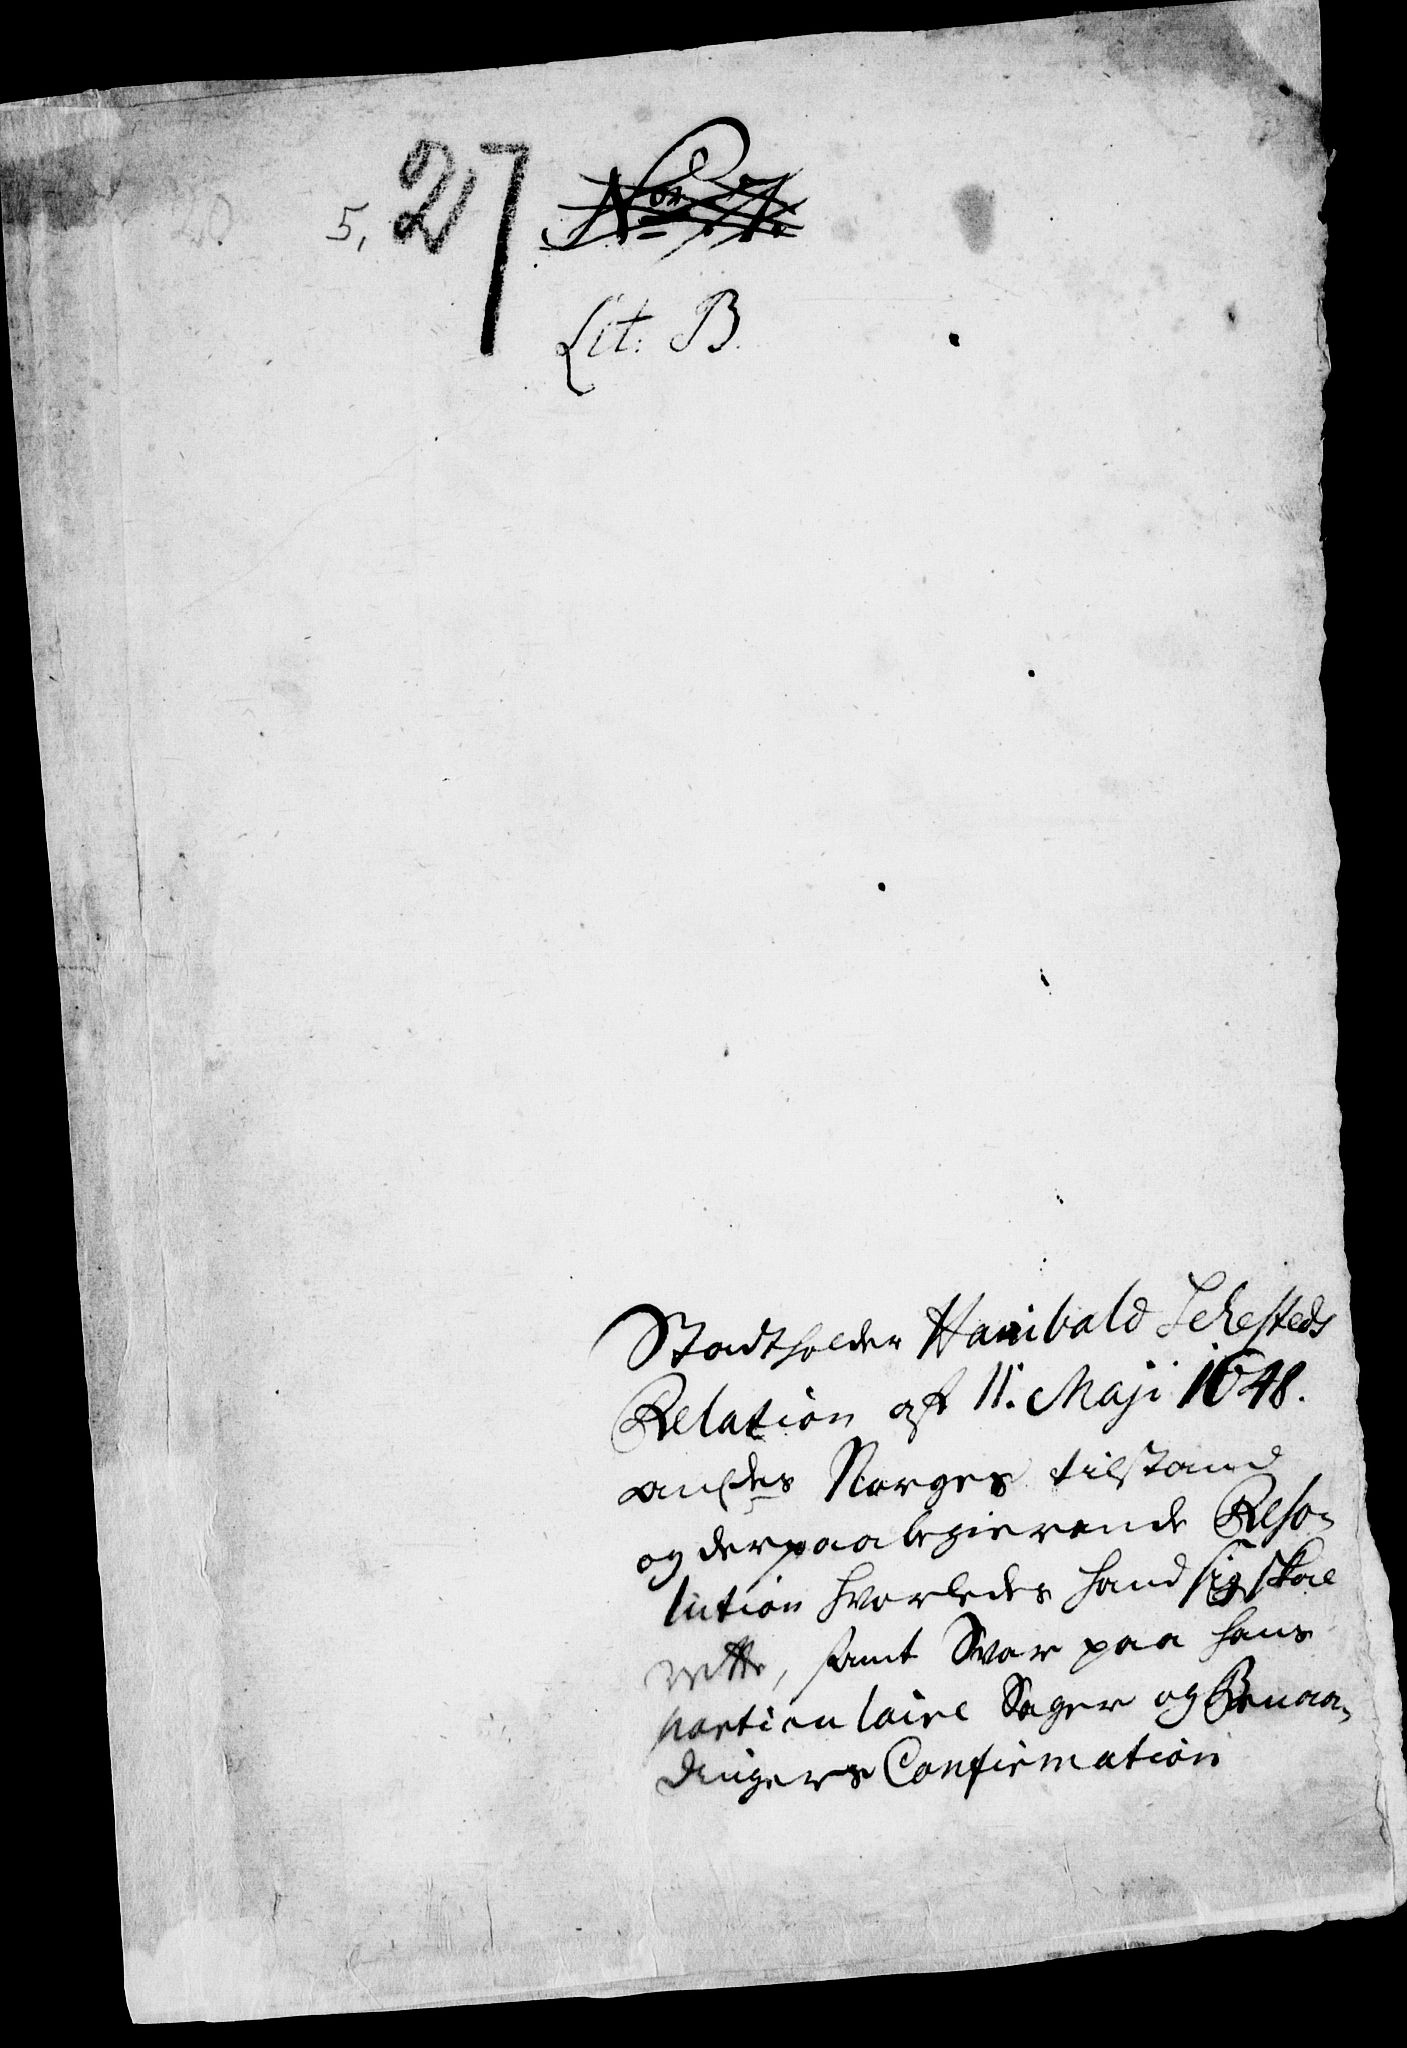 20
5, 27
Lit: B.
Stadtholder Hanibald Sehesteds
Relation aff 11. Maji 1648.
Norges tilstand
og derpaa begierende Reso-
lution hvorledes hand sig skal
rette, samt Svar paa hans
particulaire Sager og Benaa-
dingers Confirmation